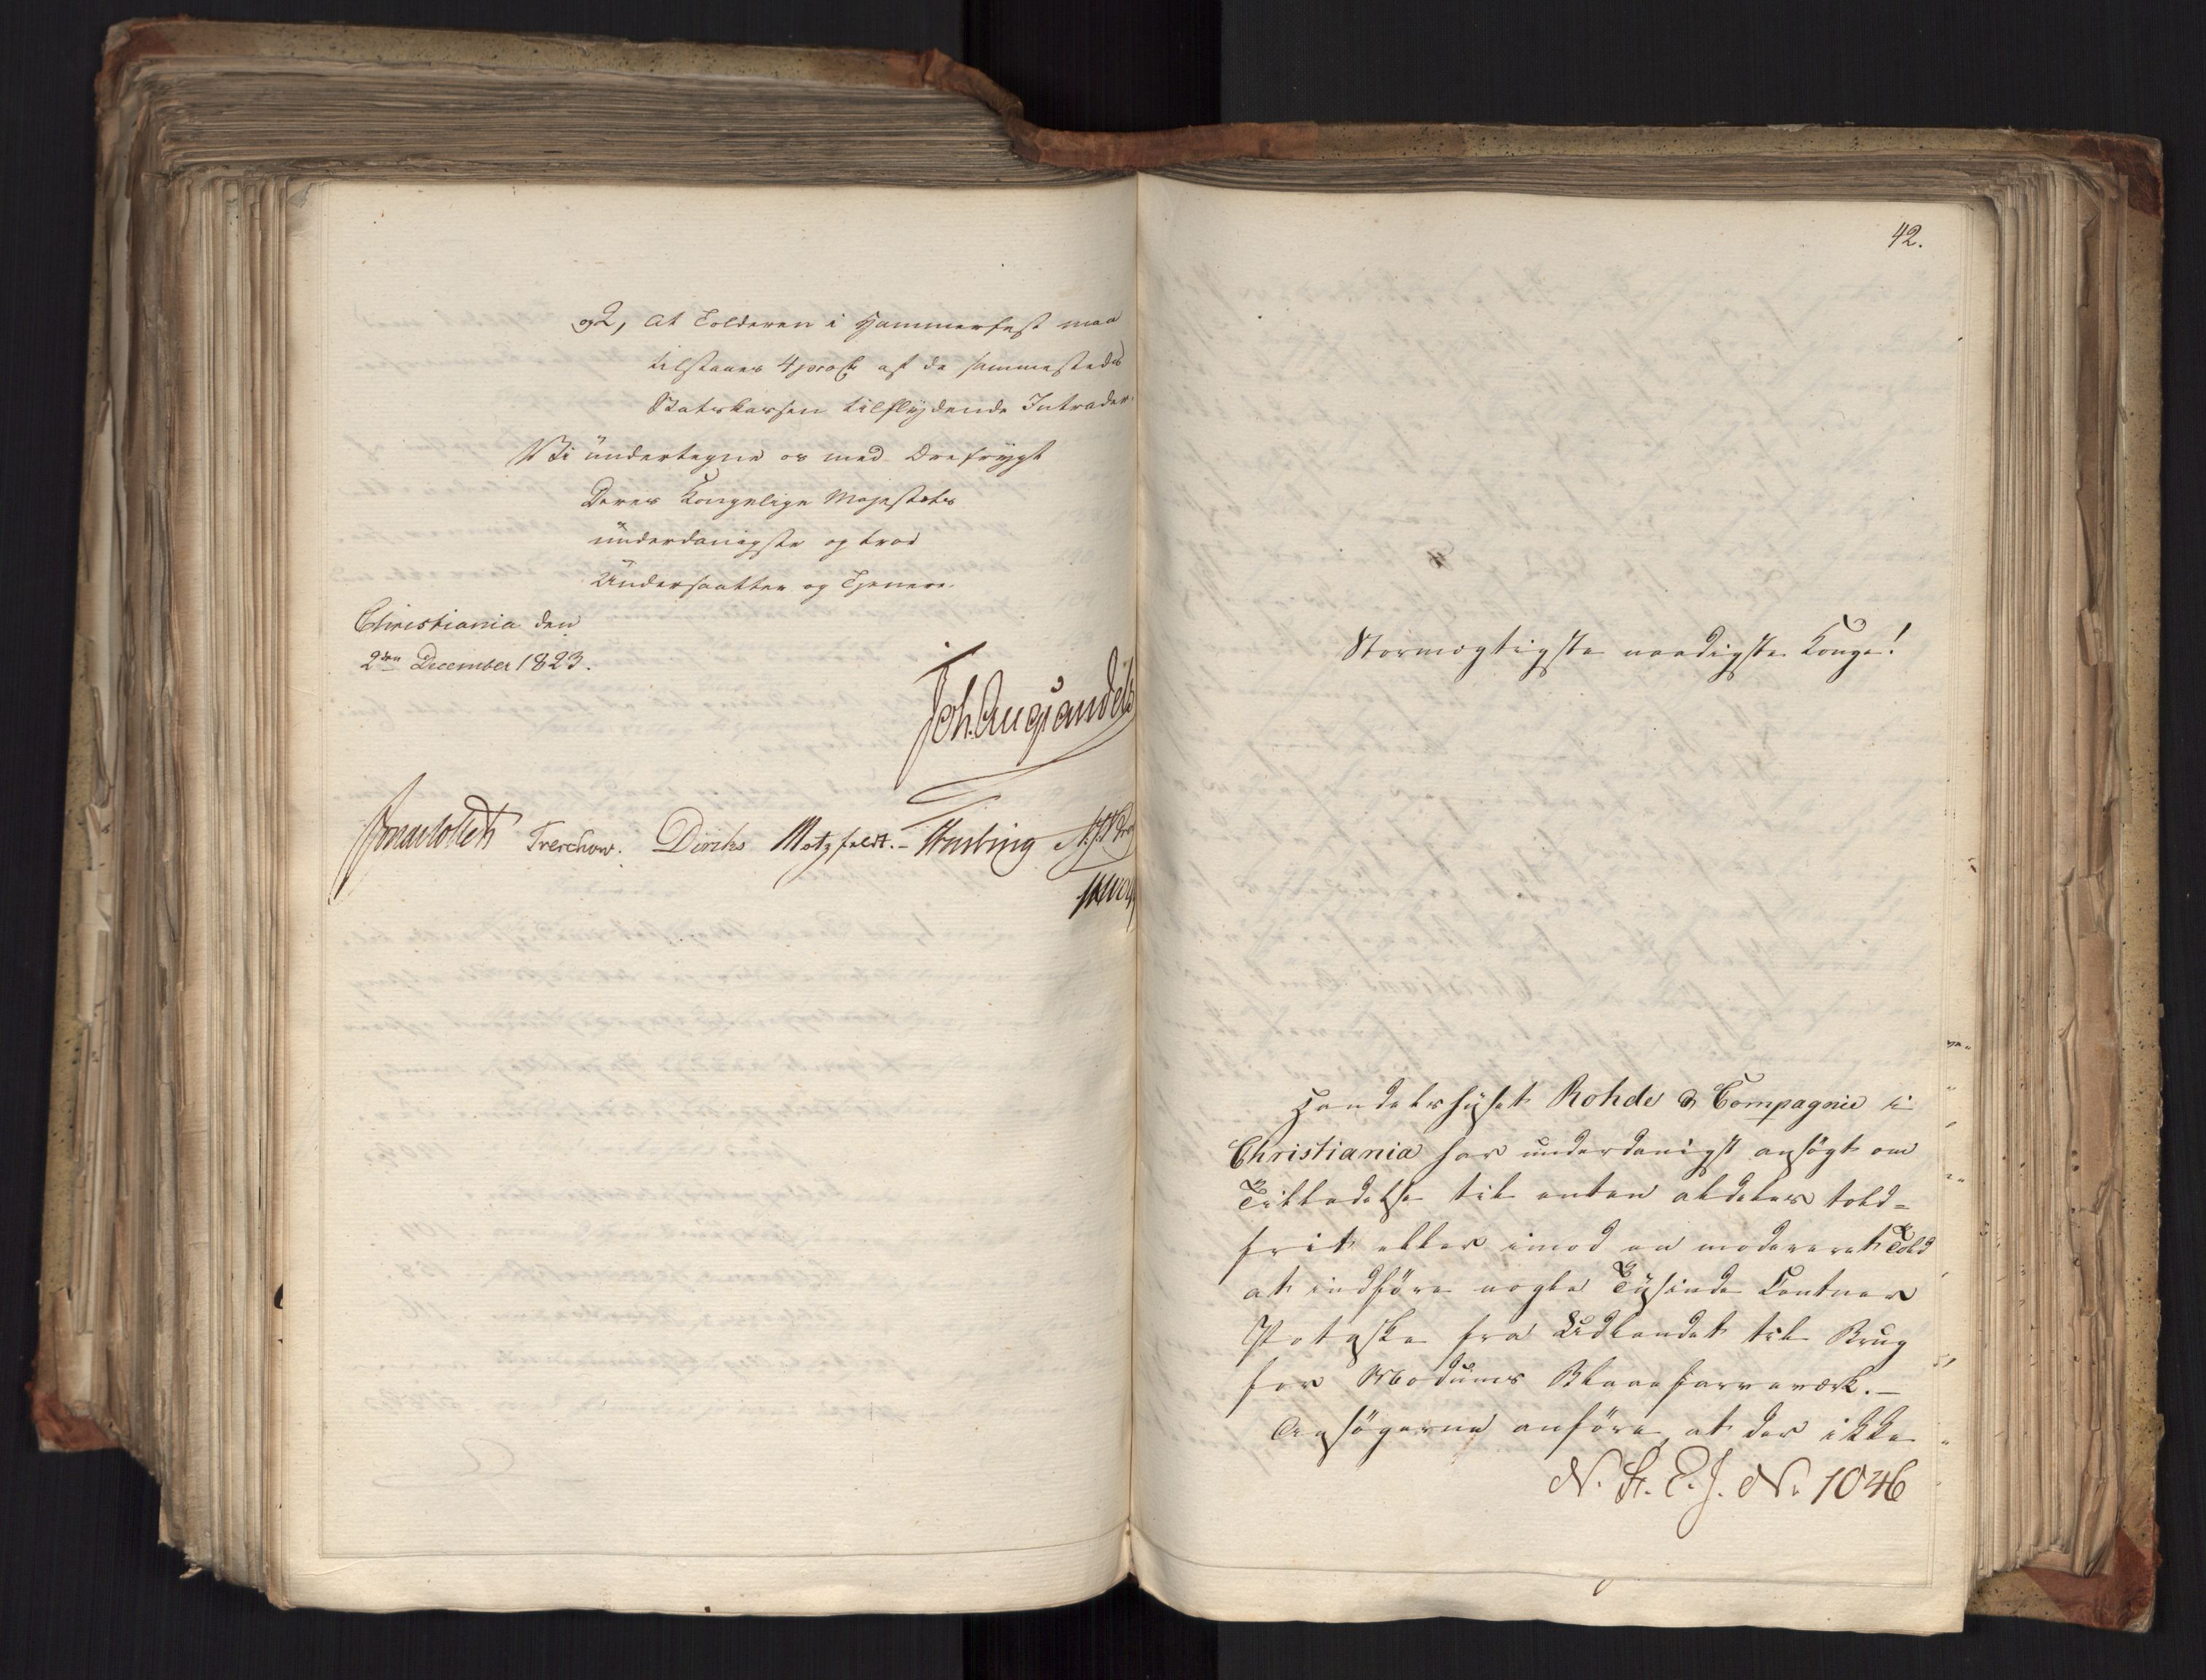 og 2, At Tolderen i Hammerfest maa
tilstaaes 4 pro Ct af de sammesteds
Statskassen tilflydende Intrader.
Vi undertegne os med Ærefrygt
Deres Kongelige Majestæts
underdanigste og troe
Undersaatter og Tjenere.
Christiania den
2den December 1823.
Joh. Aug. Sandels
Jonas Collett Treschow. Diriks Motzfeldt. Fasting
42.
Stormægtigste naadigste Konge!
Handelshuset Rohde & Compagnie i
Christiania har underdanigst ansögt om
Tilladelse til enten aldeles told=
frit eller imod en modereret Told
at indföre nogle Tusinde Centner
Potaske fra Udlandet til Brug
for Modums Blaafarveværk.—
Ansögerne anföre, at der ikke
N. St. E. J. No. 1046